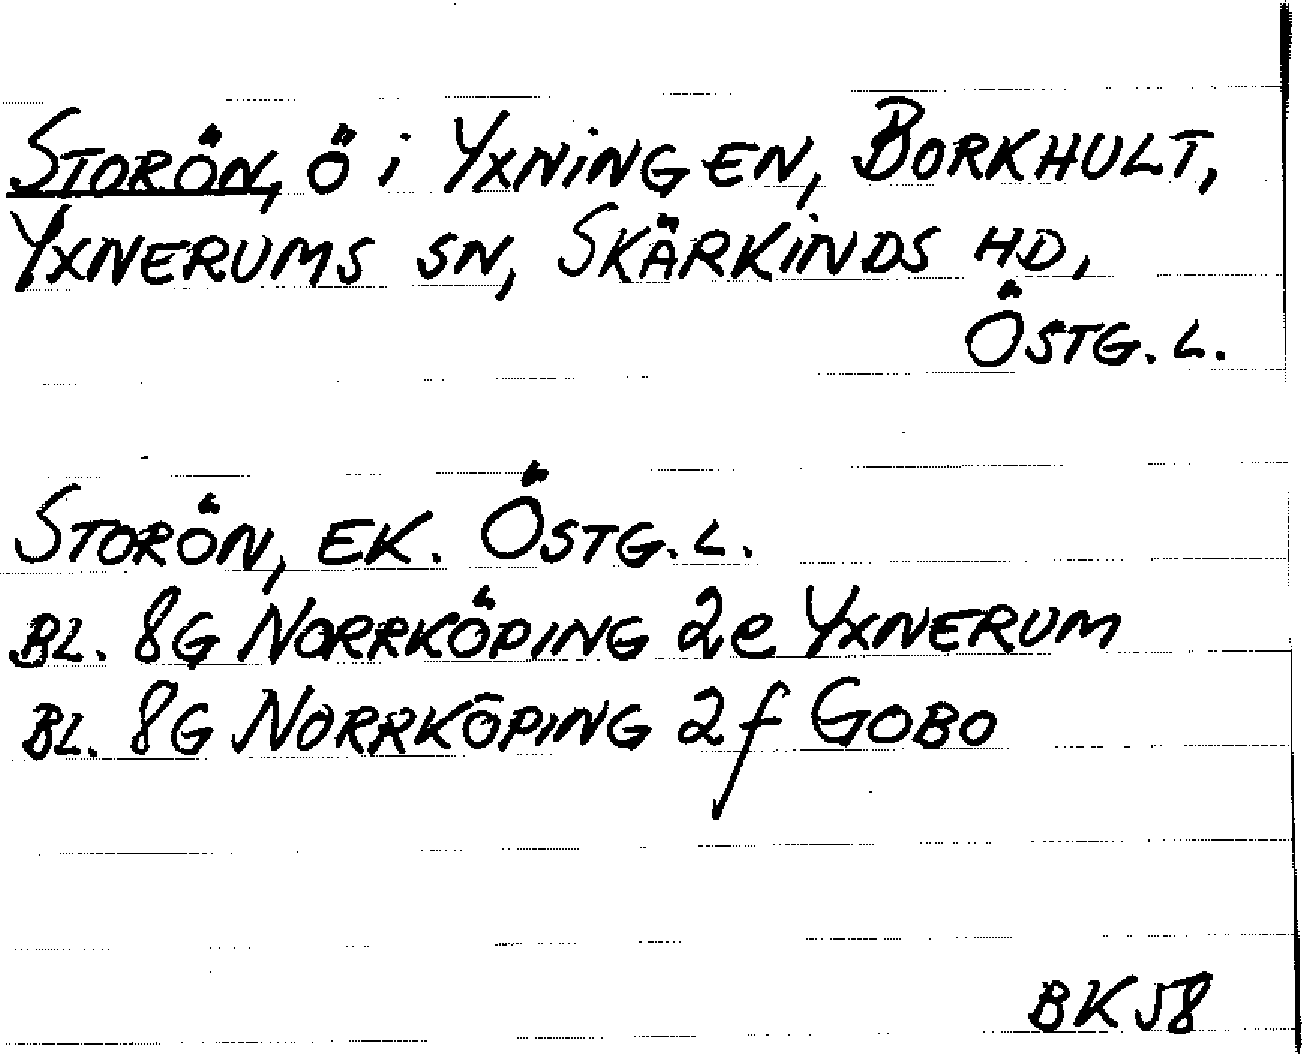 STORÖN, Ö i YXNiNGEN, BORKHULT,
YXNERUMS SN, SKÄRKiNDS HD,
ÖSTG. L.
STORÖN, EK. ÖSTG. L.
BL. 8G NORRKÖPING 2e YXNERUM
BL. 8G NORRKÖPING 2f GOBO
BK 58